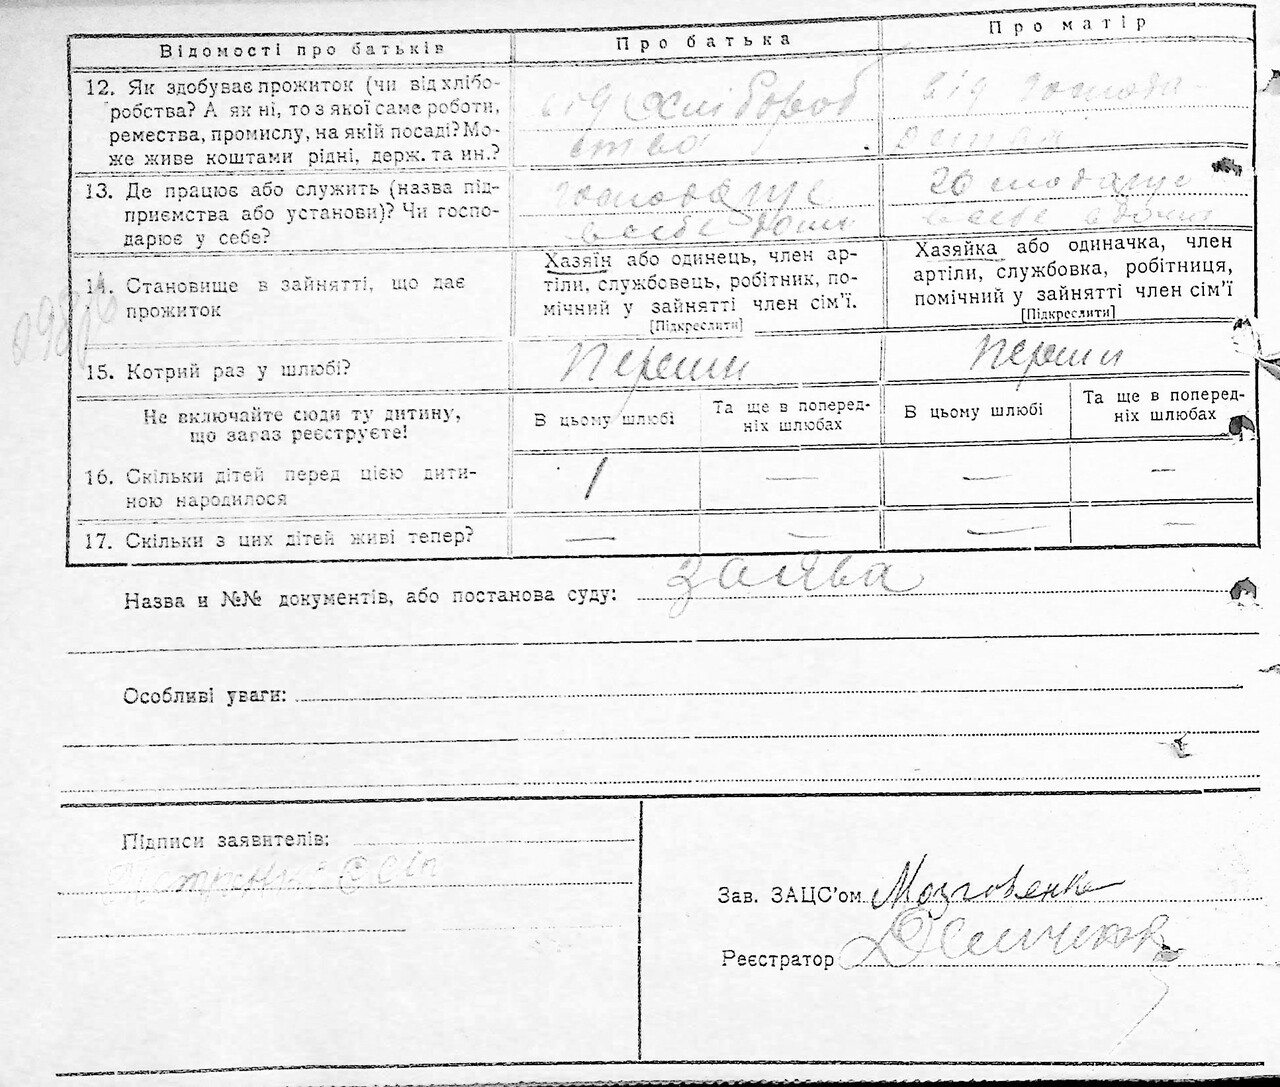 Відомості про батьків
Про батька
Про матір
12. Як здобуває прожиток (чи від хлібо-
робства? А як ні, то з якої саме роботи,
ремества, промислу, на якій посаді? Мо-
же живе коштами рідні, держ. та ин.?
від хлібороб
ства
від господа
13. Де працює або служить (назва під-
приємства або установи)? Чи госпо-
дарює у себе?
господарує
в себе дома
господарує
в себе вдома
14. Становище в зайнятті, що дає
прожиток
Хазяїн або одинець, член ар-
тіли, службовець, робітник, по-
мічний у зайнятті член сім'ї.
[Підкреслити]
Хазяйка або одиначка, член
артіли, службовка, робітниця,
помічний у зайнятті член сім'ї
[Підкреслити]
15. Котрий раз у шлюбі?
перший
перший
Не включайте сюди ту дитину,
що зараз реєструєте!
В цьому шлюбі
Та ще в поперед-
ніх шлюбах
В цьому шлюбі
Та ще в поперед-
ніх шлюбах
16. Скільки дітей перед цією дити-
ною народилося
1 — — —
17. Скільки з цих дітей живі тепер?
— — — —
Назва и №№ документів, або постанова суду: заява
Особливі уваги:
Підписи заявителів:
Зав. ЗАЦС'ом Мозговенко
Реєстратор